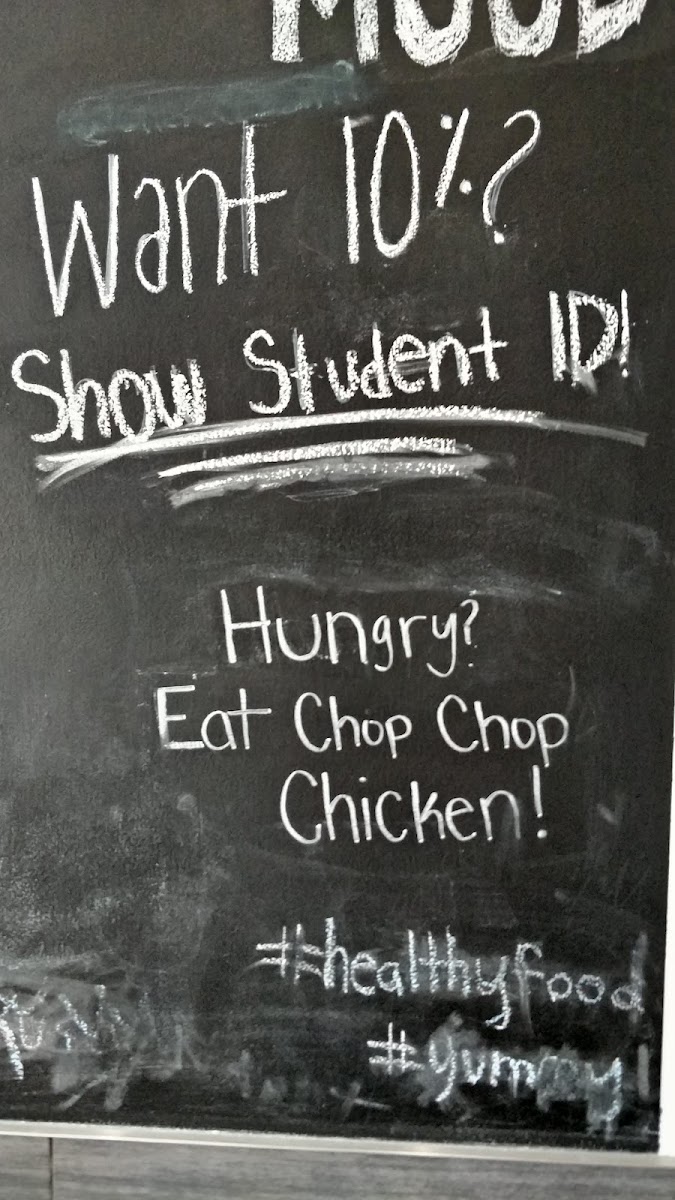 MOOD
Want 10%?
Show Student ID!
Hungry?
Eat Chop Chop
Chicken!
#healthyfood
#yummy!